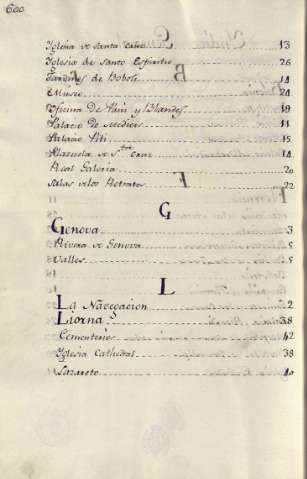 600
Iglesia de Santa Cruz 13
Iglesia de Santo Espiritu 26
Jardines de Boboli 14
Museo 24
Oficina de Pain y Blandes 19
Palacio de Medicis 11
Palacio Piti 15
Plazuela de Sta Cruz 14
Real Galeria 20
Salas de los Retratos 22
G
Genova 3
Rivera de Genova 5
Valles 5
L
La Navegacion 2
Liorna 38
Cementerios 42
Yglesia Cathedral 38
Lazareto 40